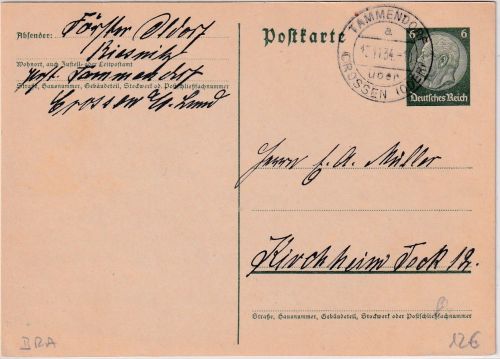 Absender: Förster Oldorf
Biesnitz
Wohnort, auch Zustell- oder Leitpostamt
Post Tammendorf
Straße, Hausnummer, Gebäudeteil, Stockwerk od. Postschließfachnummer
Crossen a/O. Land
Postkarte
TAMMENDORF
a
34
über
(CROSSEN (ODER)
6
6
Deutsches Reich
Herrn E. A. Müller
Kirchheim Teck 12.
Straße, Hausnummer, Gebäudeteil, Stockwerk oder Postschließfachnummer
BRA
12€